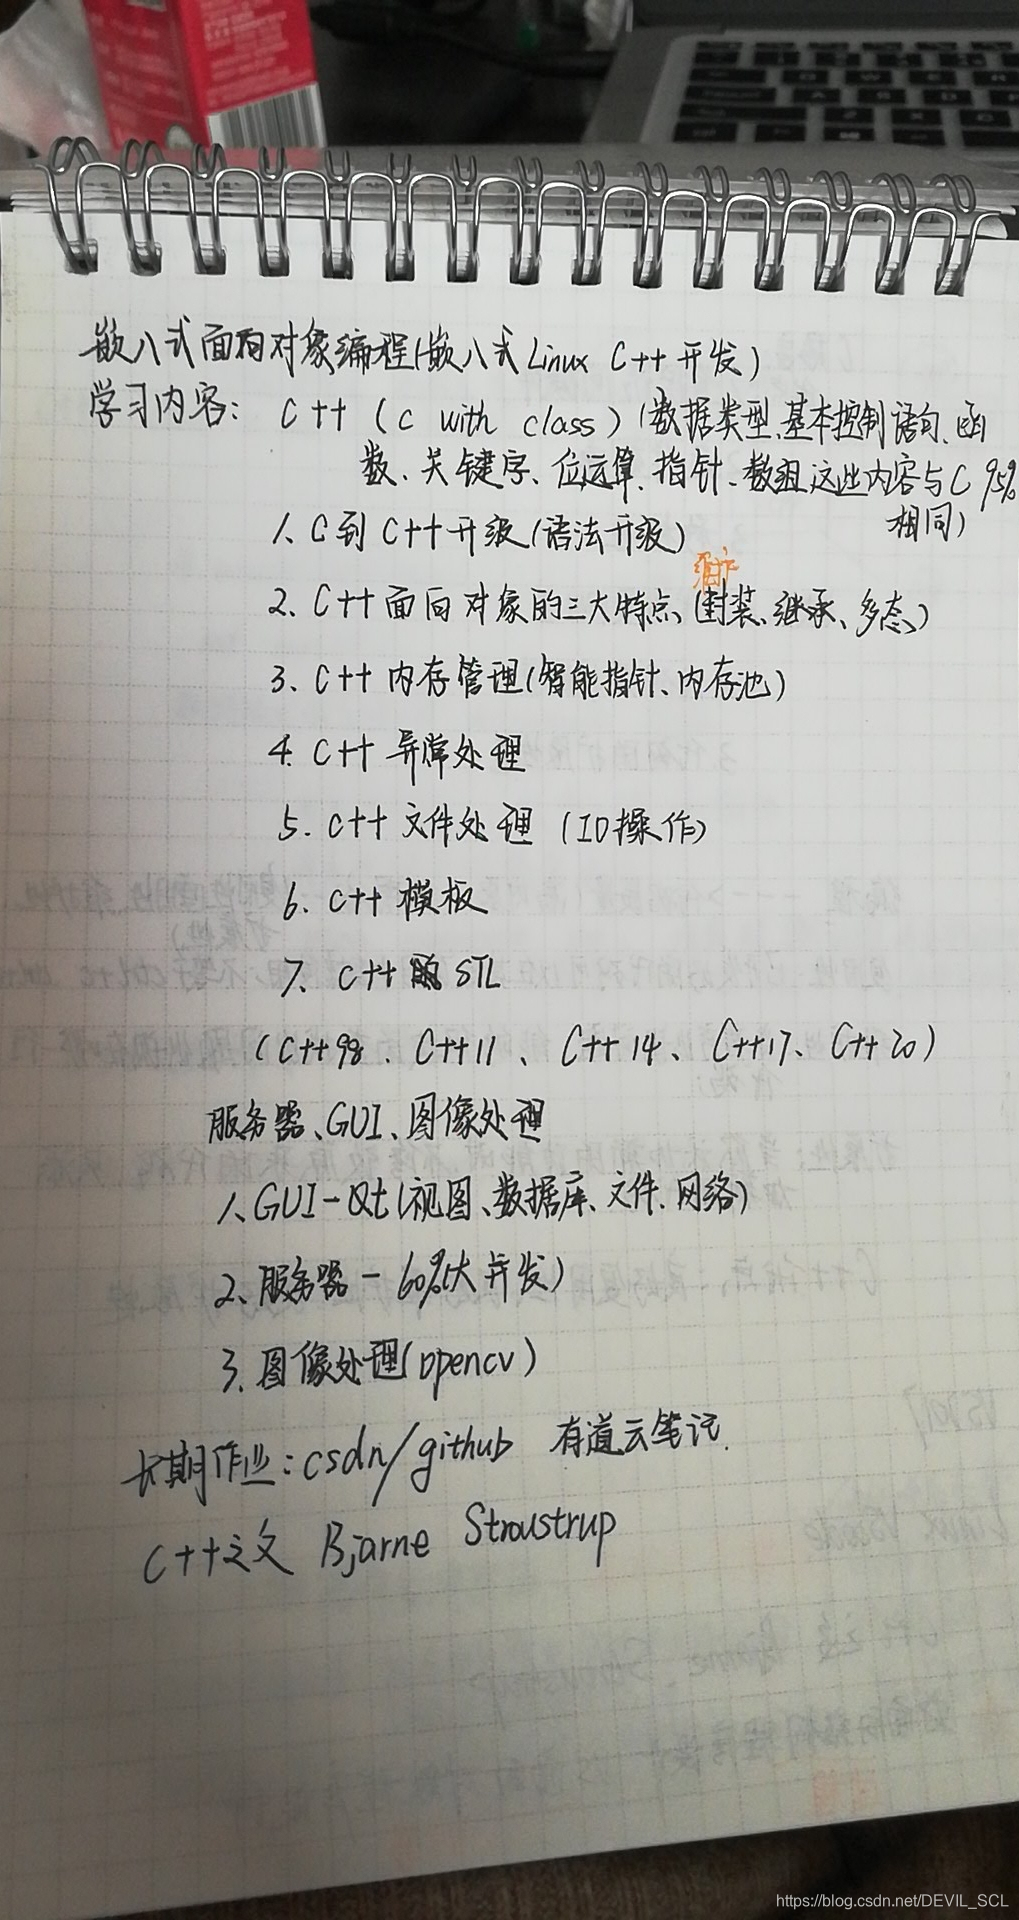 嵌入式面向对象编程(嵌入式Linux C++开发)
学习内容: C++ (c with class) (数据类型、基本控制语句、函
数、关键字、位运算、指针、数组这些内容与C 95%
相同)
1. C到C++升级(语法升级)
2. C++面向对象的三大特点(封装、继承、多态)
3. C++内存管理(智能指针、内存池)
4. C++ 异常处理
5. C++ 文件处理 (IO操作)
6. C++ 模板
7. C++的STL
(C++98、C++11、C++14、C++17、C++20)
服务器、GUI、图像处理
1. GUI-Qt(视图、数据库、文件、网络)
2. 服务器-60%(大并发)
3. 图像处理(opencv)
长期作业:csdn/github 有道云笔记
C++之父 Bjarne Stroustrup
https://blog.csdn.net/DEVIL_SCL